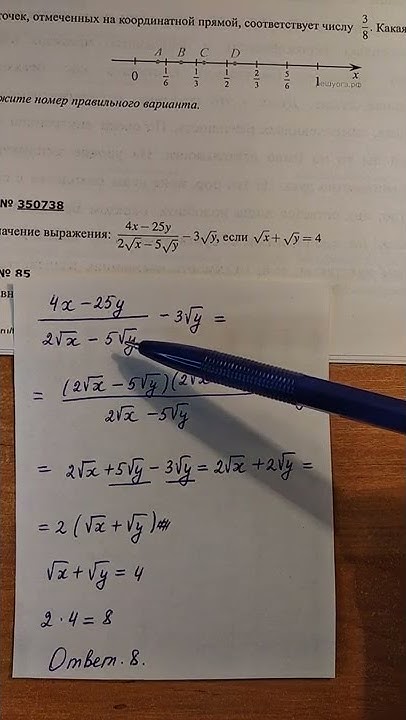 точек, отмеченных на координатной прямой, соответствует числу 3/8. Какая
A B C D
0 1/6 1/3 1/2 2/3 5/6 1 x
ешуога.рф
жите номер правильного варианта.
№ 350738
начение выражения: (4x − 25y)/(2√x − 5√y) − 3√y, если √x + √y = 4
№ 85
(4x − 25y)/(2√x − 5√y) − 3√y =
= (2√x − 5√y)(2√x / (2√x − 5√y)
= 2√x + 5√y − 3√y = 2√x + 2√y =
= 2(√x + √y)
√x + √y = 4
2 · 4 = 8
Ответ. 8.